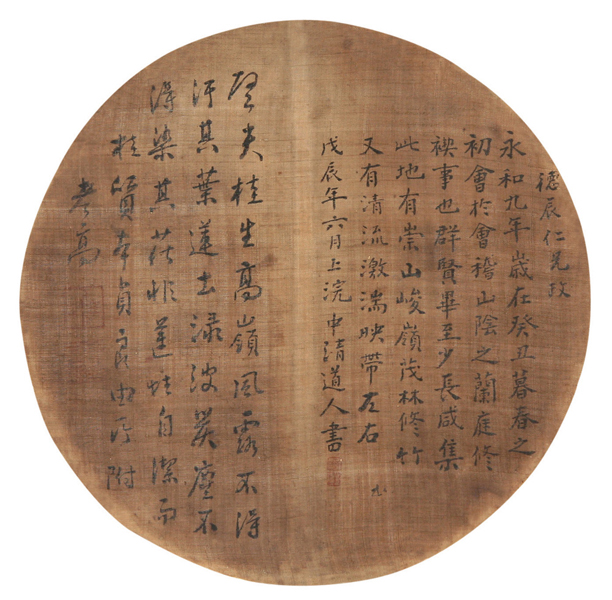 德辰仁兄政
永和九年歲在癸丑暮春之
初會於會稽山陰之蘭庭修
禊事也群賢畢至少長咸集
此地有崇山峻嶺茂林修竹
又有清流激湍映帶左右
戊辰年六月上浣中清道人書
夫桂生高嶺風露不得
汙其葉蓮出淥波塵不
得染其花非蓮性自潔而
桂質本貞良由所附